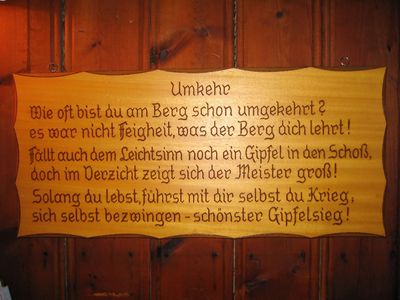 Umkehr
Wie oft bist du am Berg schon umgekehrt?
es war nicht Feigheit, was der Berg dich lehrt!
Fällt auch dem Leichtsinn noch ein Gipfel in den Schoß,
doch im Verzicht zeigt sich der Meister groß!
Solang du lebst, führst mit dir selbst du Krieg,
sich selbst bezwingen - schönster Gipfelsieg!